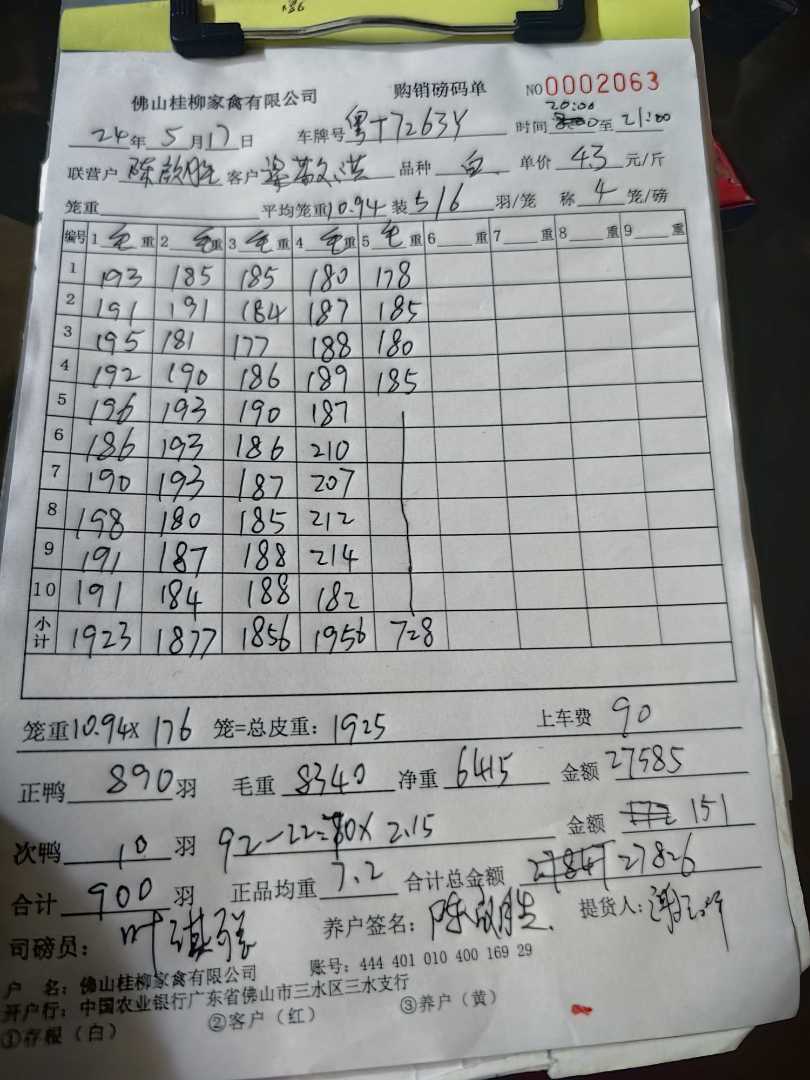 佛山桂柳家禽有限公司 购销磅码单 NO0002063
24年5月17日 车牌号粤T7263Y 时间20:00至21:00
联营户陈啟胜 客户梁 洪 品种白 单价4.3元/斤
笼重 平均笼重10.94装5/6羽/笼 称4笼/磅
编号 1毛重 2毛重 3毛重 4毛重 5毛重 6重 7重 8重 9重
1 193 185 185 180 178
2 191 191 184 187 185
3 195 181 177 188 180
4 192 190 186 189 185
5 196 193 190 187
6 186 193 186 210
7 190 193 187 207
8 198 180 185 212
9 191 187 188 214
10 191 184 188 182
小计 1923 1877 1856 1956 728
笼重10.94×176笼=总皮重:1925 上车费90
正鸭890羽 毛重8340净重6415 金额27585
次鸭10羽 92-22=70×2.15 金额151
合计900羽 正品均重7.2 合计总金额27847 27826
司磅员:叶 强 养户签名:陈啟胜. 提货人:谢
户 名:佛山桂柳家禽有限公司 账号:444 401 010 400 169 29
开户行:中国农业银行广东省佛山市三水区三水支行
①存根(白) ②客户(红) ③养户(黄)